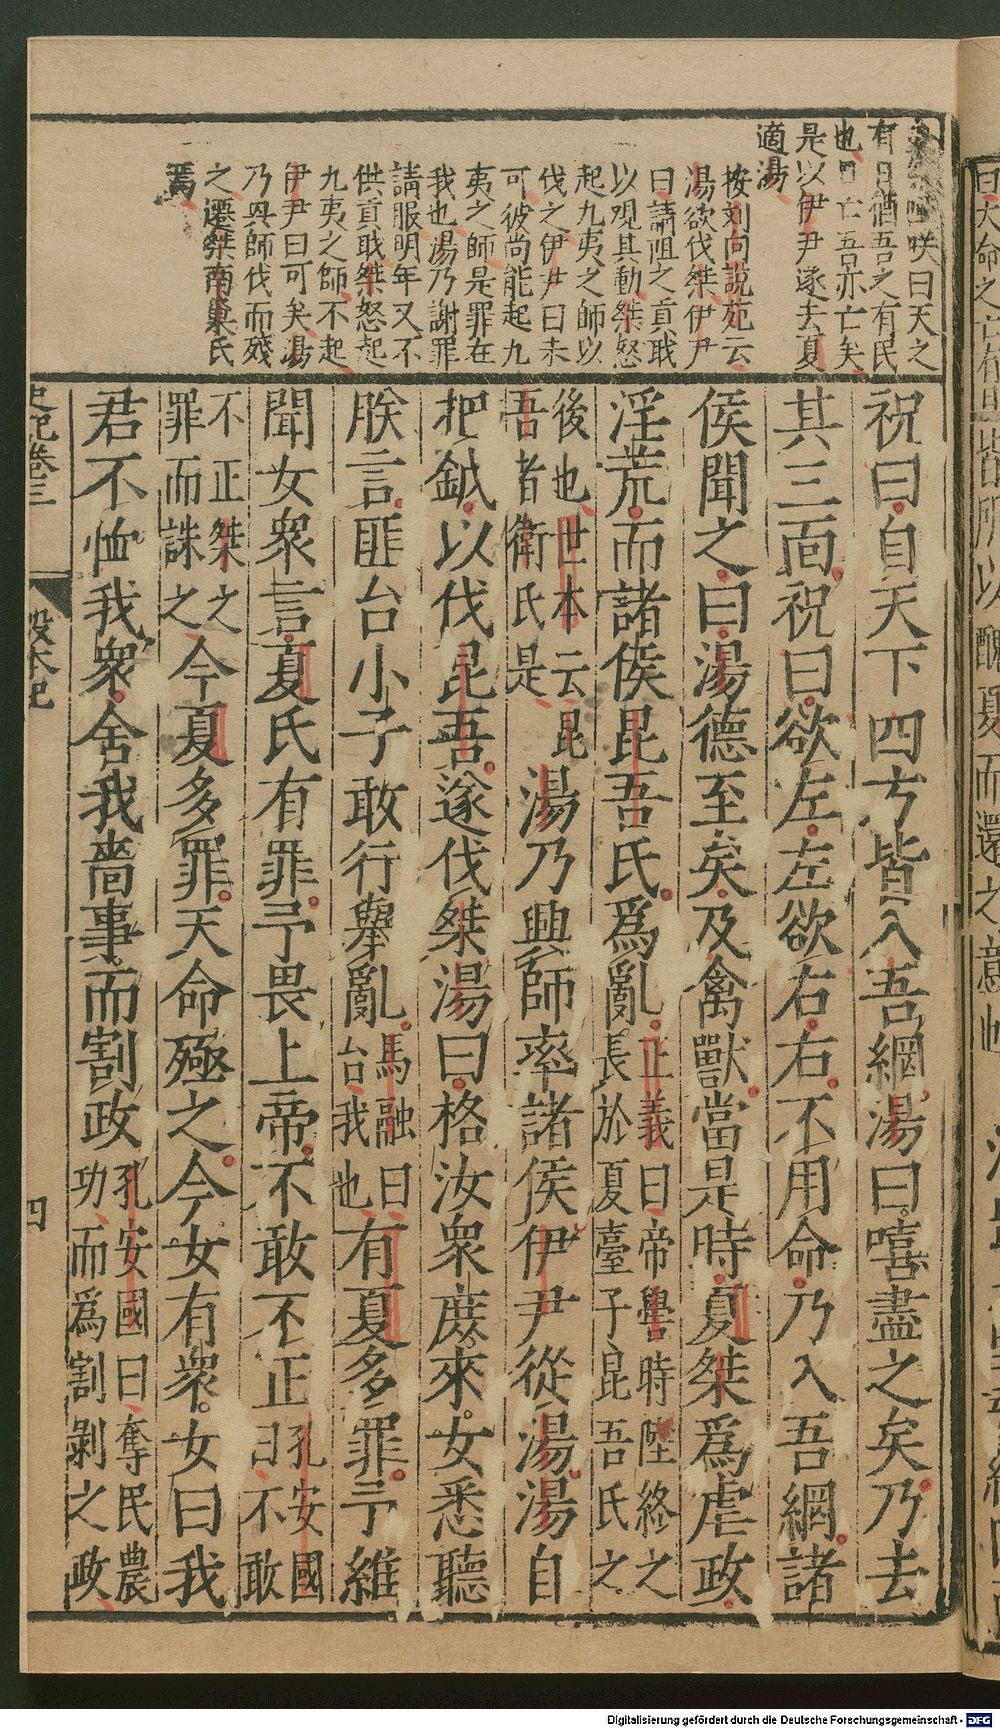 咲曰天之
有日猶吾之有民
也日亡吾亦亡矣
是以伊尹遂去夏
適湯
按刘向說苑云
湯欲伐桀伊尹
曰請阻之貢職
以觀其動桀怒
起九夷之師以
伐之伊尹曰未
可彼尚能起九
夷之師是罪在
我也湯乃謝罪
請服明年又不
供貢職桀怒起
九夷之師不起
伊尹曰可矣湯
乃興師伐而殘
之遷桀南巢氏
焉
祝曰自天下四方皆入吾網湯曰嘻盡之矣乃去
其三面祝曰欲左左欲右右不用命乃入吾網諸
侯聞之曰湯德至矣及禽獸當是時夏桀爲虐政
淫荒而諸侯昆吾氏爲亂正義曰帝嚳時陸終之
長於夏臺子昆吾氏之
後也世本云昆
吾者衛氏是湯乃興師率諸侯伊尹從湯湯自
把鉞以伐昆吾遂伐桀湯曰格汝衆庶來女悉聽
朕言匪台小子敢行舉亂馬融曰
台我也有夏多罪予維
聞女衆言夏氏有罪予畏上帝不敢不正孔安國
曰不敢
不正桀之
罪而誅之今夏多罪天命殛之今女有衆女曰我
君不恤我衆舍我嗇事而割政孔安國曰奪民農
功而爲割剝之政
史記卷三
殷本紀
四
Digitalisierung gefördert durch die Deutsche Forschungsgemeinschaft - DFG